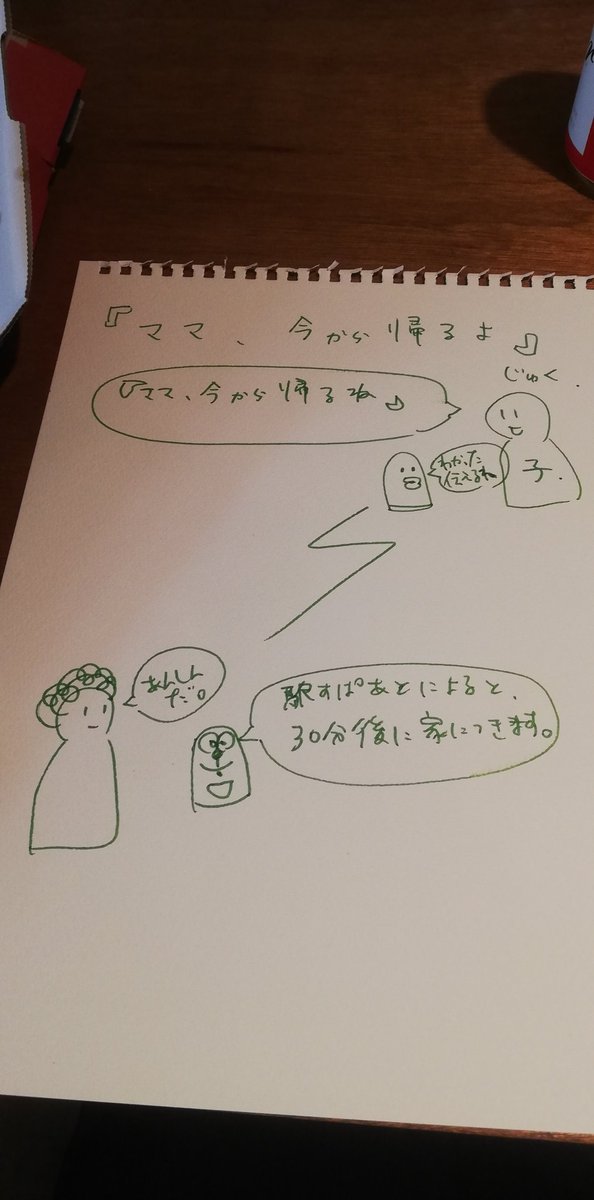 『ママ、今から帰るよ』
じゅく.
『ママ、今から帰るね』
子.
わかった
伝えるね
あんしん
だ。
駅すぱあとによると、
30分後に家につきます。